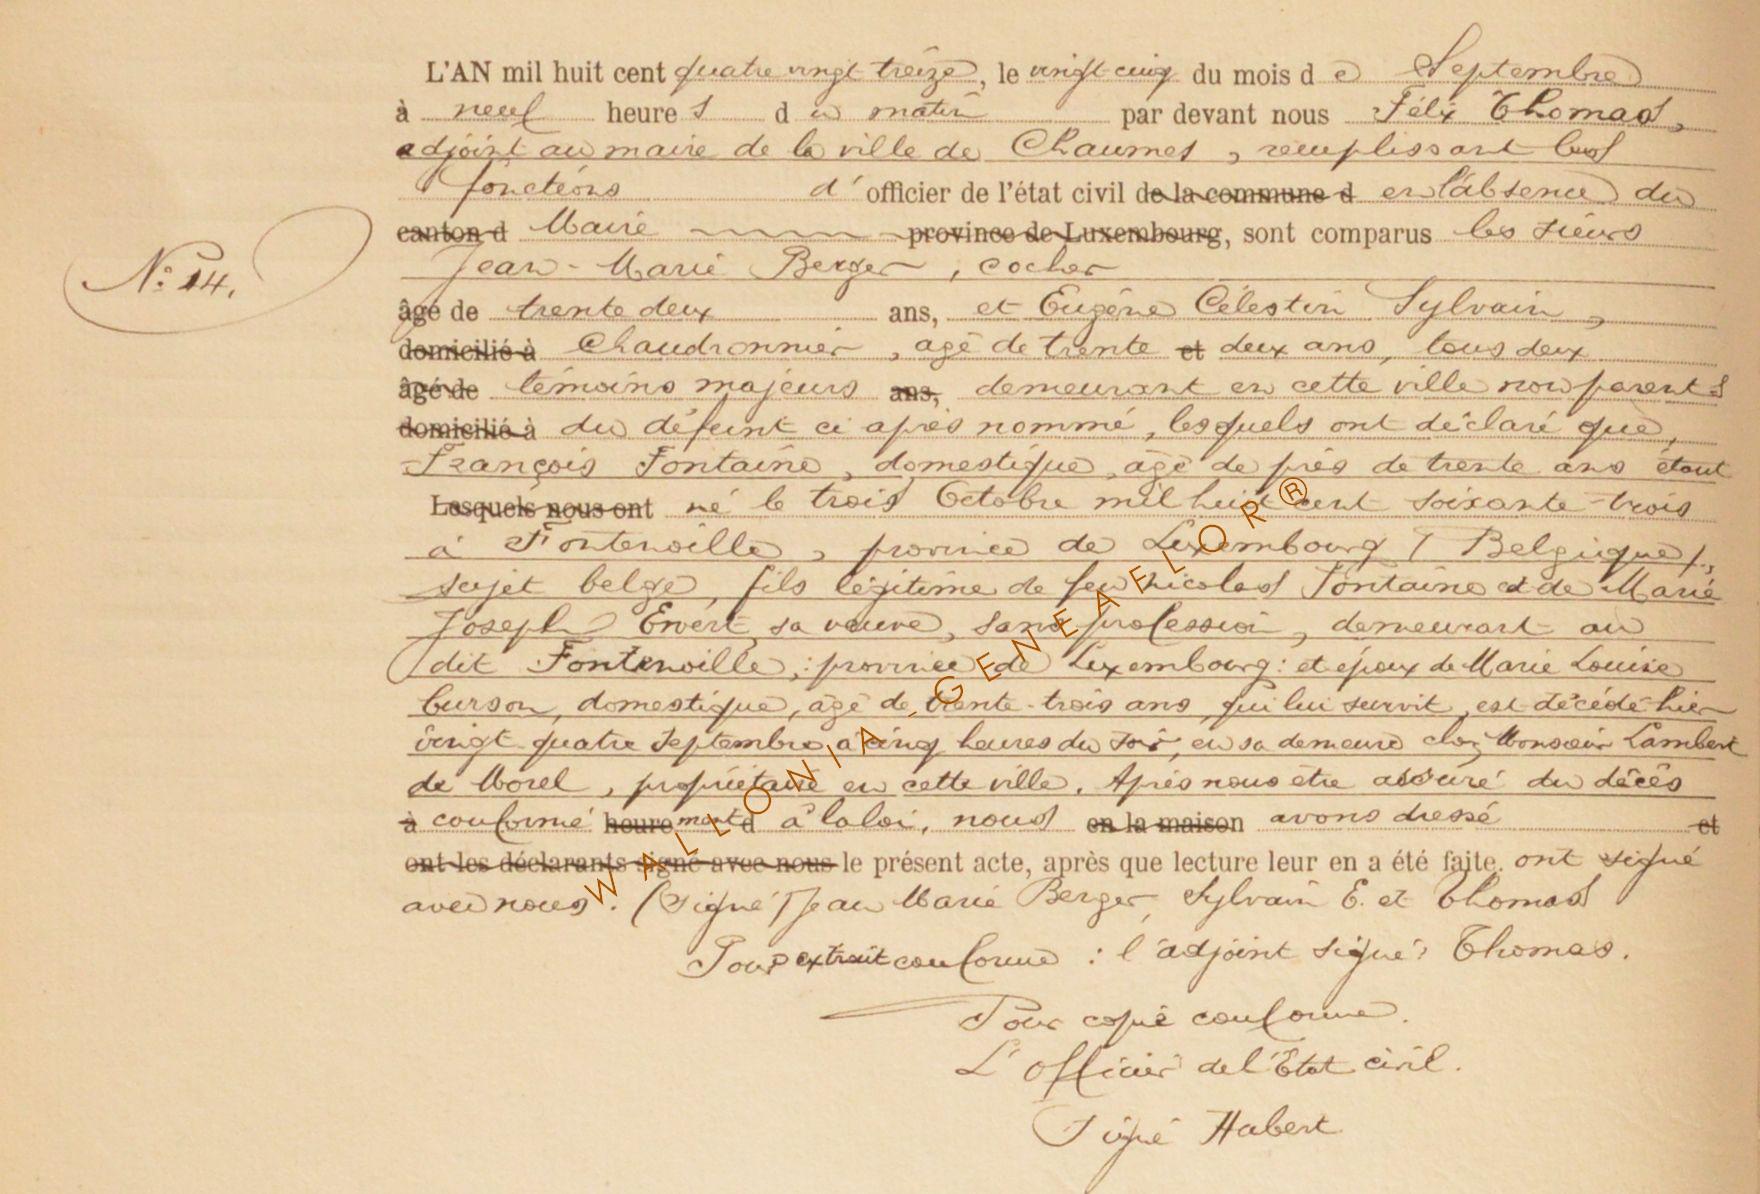 L'AN mil huit cent quatre vingt treize, le vingt cinq du mois d e Septembre
à neuf heure s d u matin par devant nous Félix Thomas,
adjoint au maire de la ville de Chaumes, remplissant les
fonctions d' officier de l'état civil de la commune d en l'absence du
canton d Maire province de Luxembourg, sont comparus les sieurs
N° 14.
Jean-Marie Berger, cocher
âgé de trente deux ans, et Eugène Célestin Sylvain,
domicilié à Chaudronnier, agé de trente et deux ans, tous deux
âgé de témoins majeurs ans, demeurant en cette ville non parents
domicilié à du défunt ci après nommé, lesquels ont déclaré que,
François Fontaine, domestique, âgé de près de trente ans étant
Lesquels nous ont né le trois Octobre mil huit cent soixante-trois
à Fontenoille, province de Luxembourg (Belgique),
sujet belge, fils légitime de feu Nicolas Fontaine et de Marie
Joseph Evert, sa veuve, sans profession, demeurant au
dit Fontenoille, : province de Luxembourg : et époux de Marie Louise
burson, domestique, âgé de trente-trois ans, qui lui survit, est décédé hier
vingt quatre Septembre à cinq heures du soir, en sa demeure chez Monsieur Lambert
de Morel, propriétaire en cette ville. Après nous être assuré du décès
à conformé heure ment d à la loi, nous en la maison avons dressé et
ont les déclarants signé avec nous le présent acte, après que lecture leur en a été faite. ont signé
avec nous. (Signé) Jean Marie Berger, Sylvain E. et Thomas
Pour extrait conforme : l'adjoint signé : Thomas.
Pour copie conforme.
L'officier de l'État civil.
Signé Habert
WALLONIA-GENEAELOR®